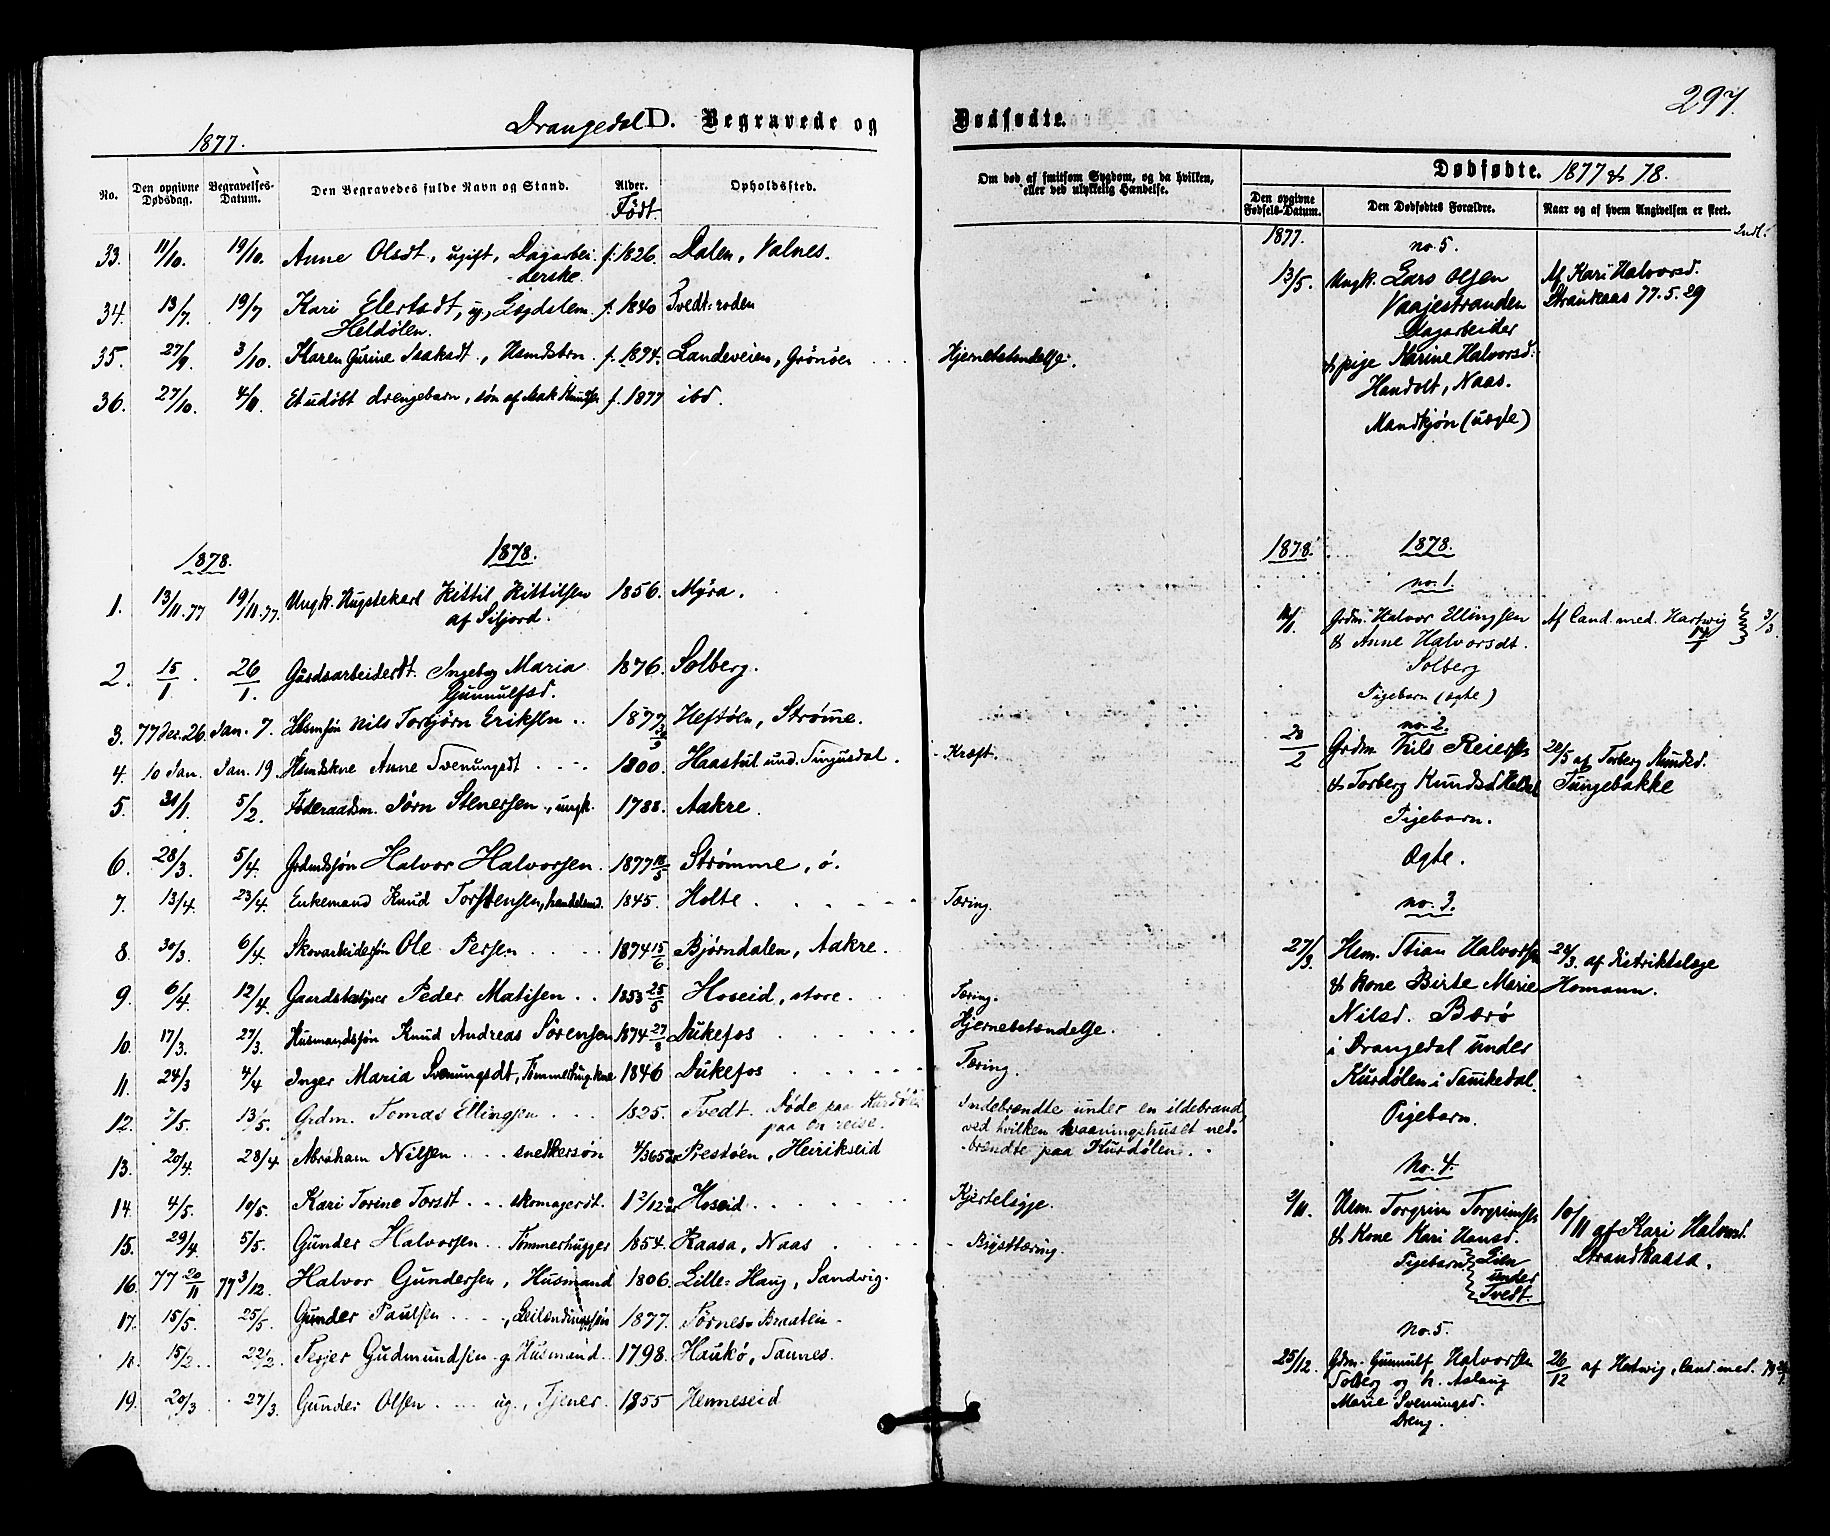 Drangedal D. Begravede og
1877.
No. Den opgivne Dødsdag. Begravelses-Datum. Den Begravedes fulde Navn og Stand. Alder. Født Opholdssted.
33. 11/10. 19/10. Anne Olsdt, ugift, Dagarbei- f. 1826. Dalen, Valnes.
derske.
34. 13/7. 19/7 Kari Elertsdt, ug, f. 1840 Tvedt-roden
Heldølen.
35. 27/9. 3/10. Karen Gurine Isaksdt, Husmdsbrn f. 1874. Landeveien, Grønåen
36. 27/10. 4/11. Et udøbt drengebarn, søn af Isak Knudsen f. 1877 ibd.
1878. 1878.
1. 13/11.77 19/11.77. Ungk. Hugstekarl Kittil Kittilsen 1856. Myra.
af Siljord.
2. 15/1. 26/1. Gaardsarbeiderdt. Ingeborg Maria 1876. Solberg.
Gunnulfsd.
3. 77 dec. 26. Jan. 7. Husmsøn Nils Torbjørn Eriksen 1877 Heftøen, Strømme.
4. 10 Jan. Jan. 19. Husmdskne Anne Svenungsdt 1800. Haastul und. Tingusdal.
5. 31/1. 5/2. Føderaadsm. Jørn Stenersen, ungk. 1788. Aakre.
6. 28/3. 5/4. Grdmdssøn Halvor Halvorsen. 1877 18/5 Strømme, ø.
7. 13/4. 23/4. Enkemand Knud Torstensen, handelsmd. 1845. Holte.
8. 30/3. 6/4. Skovarbeidersøn Ole Persen 1874 15/6 Bjørndalen, Aakre.
9. 6/4. 12/4. Gaardsbestyrer Peder Matisen 1853 25/5 Hoseid, store.
10. 17/3. 27/3. Husmandssøn Knud Andreas Sørensen 1874 27/8 Dukefos
11. 24/3 4/4 Inger Maria Svenungsdt, Tømmerhug. kne 1846 Dukefos
12. 7/5. 13/5. Grdm. Tomas Ellingsen 1825. Tvedt. Døde paa Kurdølen
paa en reise.
13. 20/4. 28/4 Abraham Nilsen snekkersøn 4/365 år Prestøen, Heirikseid
14. 4/5. 10/5. Kari Torine Torsdt skomagerdt. 1 2/12 år Hoseid
15. 29/4 5/5. Gunder Halvorsen Tømmerhugger 1854. Kaasa, Naas
16. 77 20/11 77 3/12. Halvor Gundersen, Husmand 1806. Lille-Haug, Sandvig.
17. 15/5. 25/5. Gunder Paulsen, Leilændingssøn 1877. Sørnes-Braaten
18. 15/2. 22/2. Terjer Gudmundsen g. Husmand 1798. Haukø, Tørnes.
19. 20/3 27/3. Gunder Olsen ug., Tjener 1855 Henneseid
Dødfødte.
297.
Om død af smitsom Sygdom, og da hvilken, eller ved ulykkelig Hændelse.
Hjernebetændelse.
Kræft.
Tæring.
Tæring.
Hjernebetændelse.
Tæring.
Indebrændte under en ildebrand
ved hvilken vaaningshuset ned-
brændte paa Kurdølen.
Kjertelsyge.
Brysttæring.
Dødfødte. 1877 & 78.
Den opgivne Fødsels-Datum. Den Dødfødtes Forældre. Naar og af hvem Angivelsen er skeet.
Indt.
1877. no. 5.
13/5. Ungk. Lars Olsen Af Kari Halvorsd.
Vaajestranden Strandkaas 77.5.29
Dagarbeider
& pige Karine Halvorsd.
Handolt, Naas.
Mandkjøn (uægte)
1878. 1878.
no. 1.
Grdm. Halvor Ellingsen Af Cand. med. Hartwig 3/3.
& Anne Halvorsdt.
Solberg
Pigebarn (ægte)
no. 2.
20/2 Grdm. Nils Reiersen 20/5 af Torberg Knudsd.
& Torberg Knudsd. Tungebakke
Pigebarn.
Ægte.
no. 3.
27/3. Hsm. Stian Halvorsen 28/3. af distriktslæge
& kone Birte Marie Homann.
Nilsd. Bærø
i Drangedal under
Kurdølen i Sannikedal.
Pigebarn.
No. 4.
9/11. Hsm. Torgrim Torgrimsen 10/11 af Kari Halvorsd.
& Kone Kari Hansd. Strandkaasa.
Pigebarn Lien
under
Tvedt.
No. 5.
25/12. Gdm. Gunnulf Halvorsen 26/12 af Hartwig, Cand. med.
Solberg og h. Aslaug
Marie Svenungsd.
Dreng.